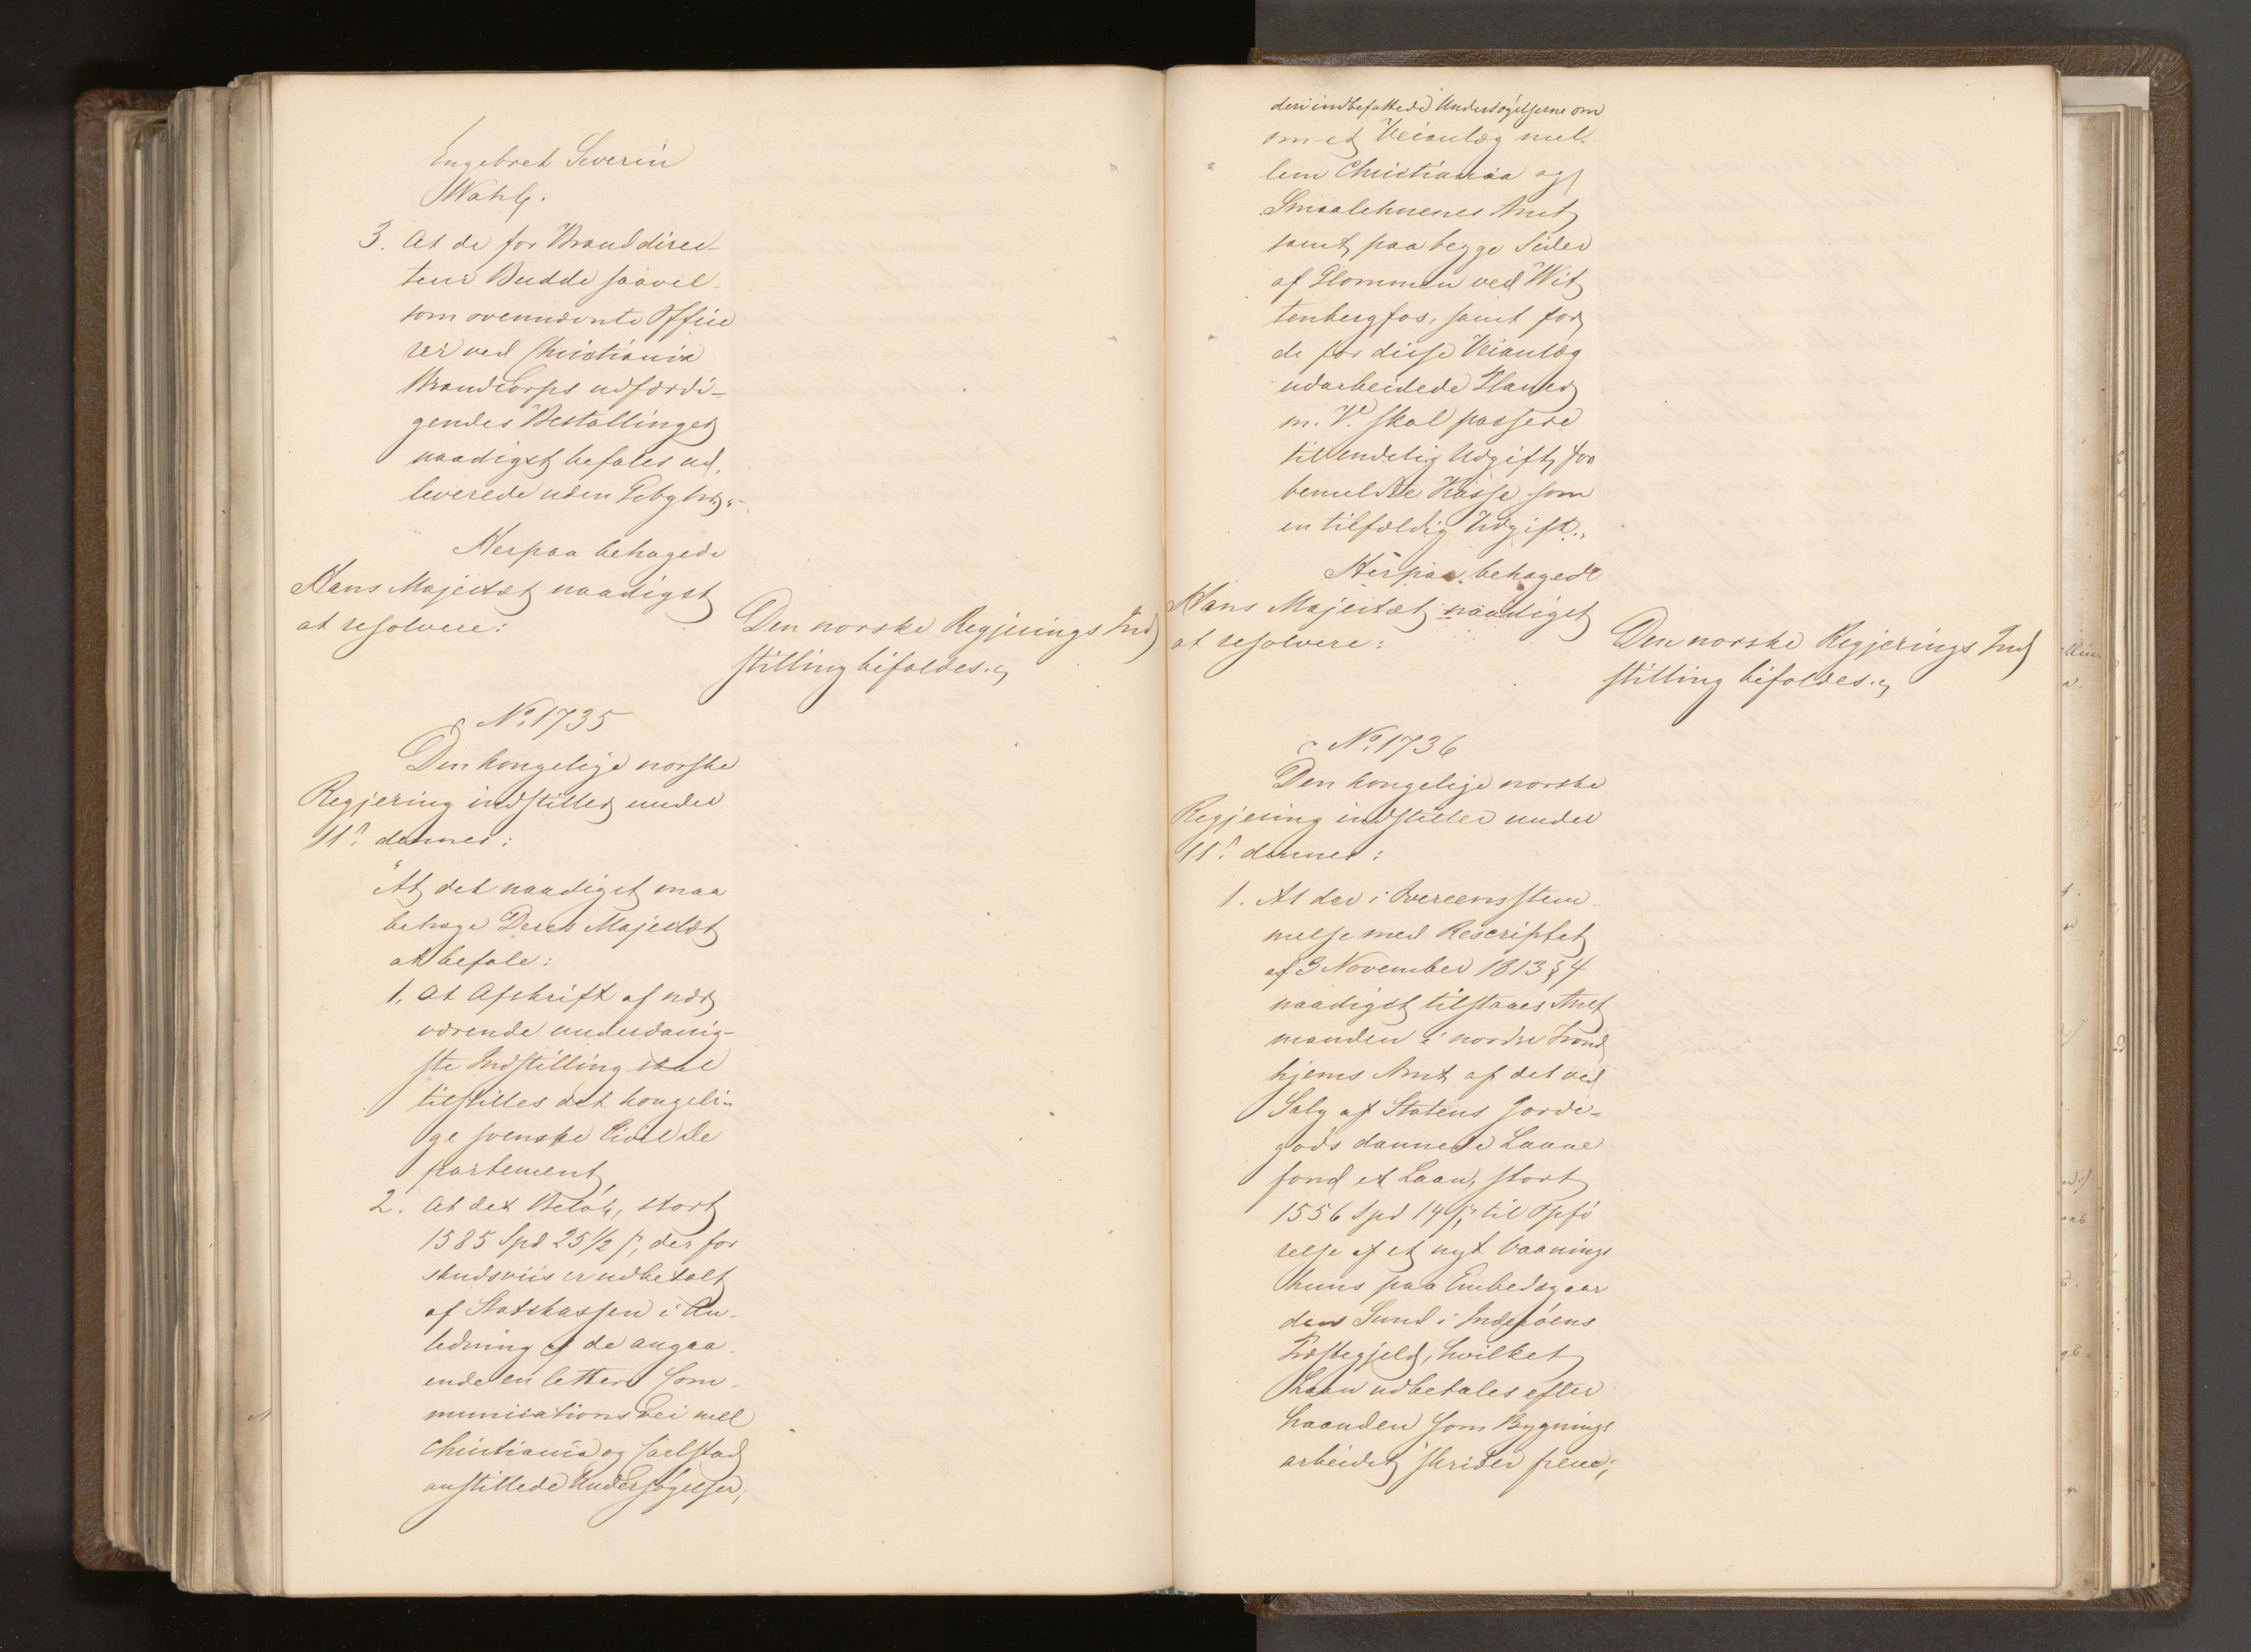 Engebret Severin
Wahl.
3. At de for Branddirec-
teur Budde saavel-
som ovennævnte Offici
rer ved Christiania
Brandcorps udfærdi-
gendes Bestallinger
naadigst befales ud-
leverede uden Gebyhr."
Herpaa behagede
Hans Majestæt naadigst
at resolvere:
Den norske Regjerings Ind
stilling bifaldes.
No. 1735
Den kongelige norske
Regjering indstiller under
11te dennes:
"At det naadigst maa
behage Deres Majestæt
at befale:
1. At Afskrift af nær
værende underdanig-
ste Indstilling skal
tilstilles det kongeli-
ge svenske Civil De
partement,
2. At det Beløb, stort
1585 Spd 25 1/2 s, der for
skudsviis er udbetalt
af Statskassen i An-
ledning af de angaa-
ende en lettere Com-
municationsvei mell
Christiania og Carlstad
anstillede Undersøgelser,
deri indbefattede Undersøgelserne om
om et Veianlæg mel-
lem Christiania og
Smaalehnenes Amt
samt paa begge Sider
af Glommen ved Wit
tenbergfos, samt for
de for disse Veianlæg
udarbeidede Planer
m. V. skal passere
til endelig Udgift for
bemeldte Kasse som
en tilfældig Udgift."
Herpaa behagede
Hans Majestæt naadigst
at resolvere:
Den norske Regjerings Ind
stilling bifaldes.
No. 1736
Den kongelige norske
Regjering indstiller under
11te dennes:
1. At der i Overeensstem-
melse med Rescriptet
af 3 November 1813 § 4
naadigst tilstaaes Amt
manden i nordre Trond
hjems Amt af det ved
Salg af Statens Jorde-
gods dannede Laane
fond et Laan, stort
1556 Spd 14 s, til Opfø
relse af et nyt Vaanings
huus paa Embedsgaar
den Sund i Inderøens
Præstegjeld, hvilket
Laan udbetales efter
haanden som Bygnings
arbeidet skrider frem;